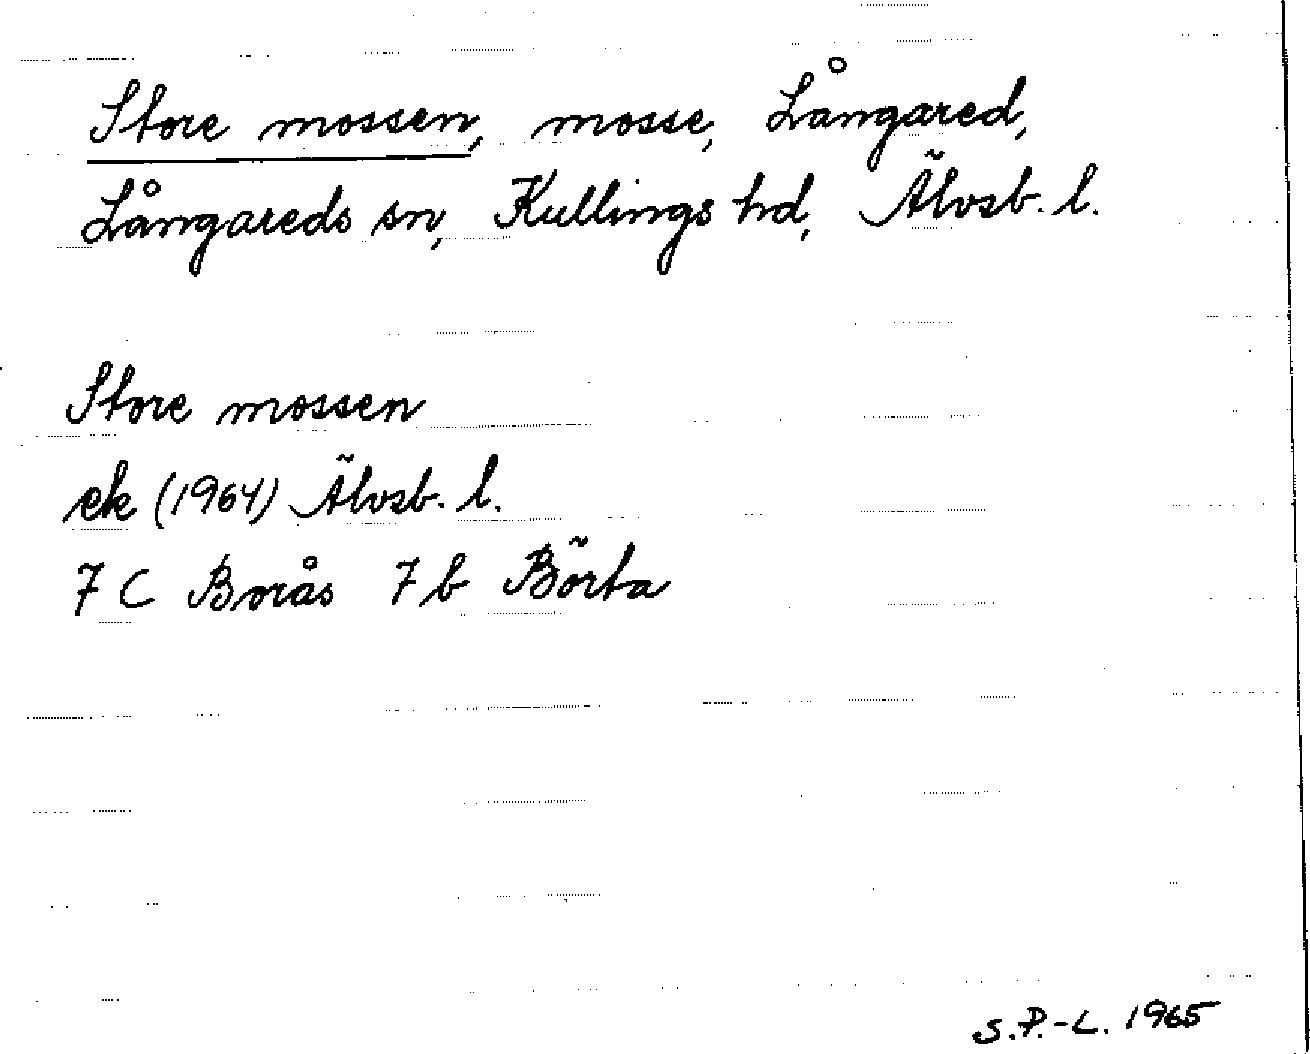 Store mossen, mosse, Långared,
Långareds sn, Kullings hd, Älvsb. l.
Store mossen
ek (1964) Älvsb. l.
7 C Borås 7 b Börta
S.P.-L. 1965